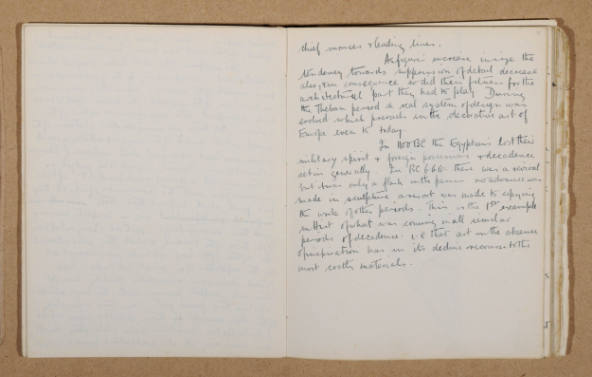 chief masses & leading lines.
As figures increase in size the
tendency towards suppression of detail decrease
also, & in consequence so did their fitness for the
architectural part they had to play. During
the Theban period a real system of design was
evolved which prevails in the decorative art of
Europe even to today.
In 1100 BC the Egyptians lost their
military spirit & foreign possessions & decadence
set in generally. In BC 666 there was a revival
but was only a flash in the no advance was
made in sculpture a resort was made to copying
the works of other periods. This is the 1st example
in Hist of what was coming in all similar
periods of decadence. i.e that art in the absence
of inspiration has in its decline recourse to the
most costly materials.